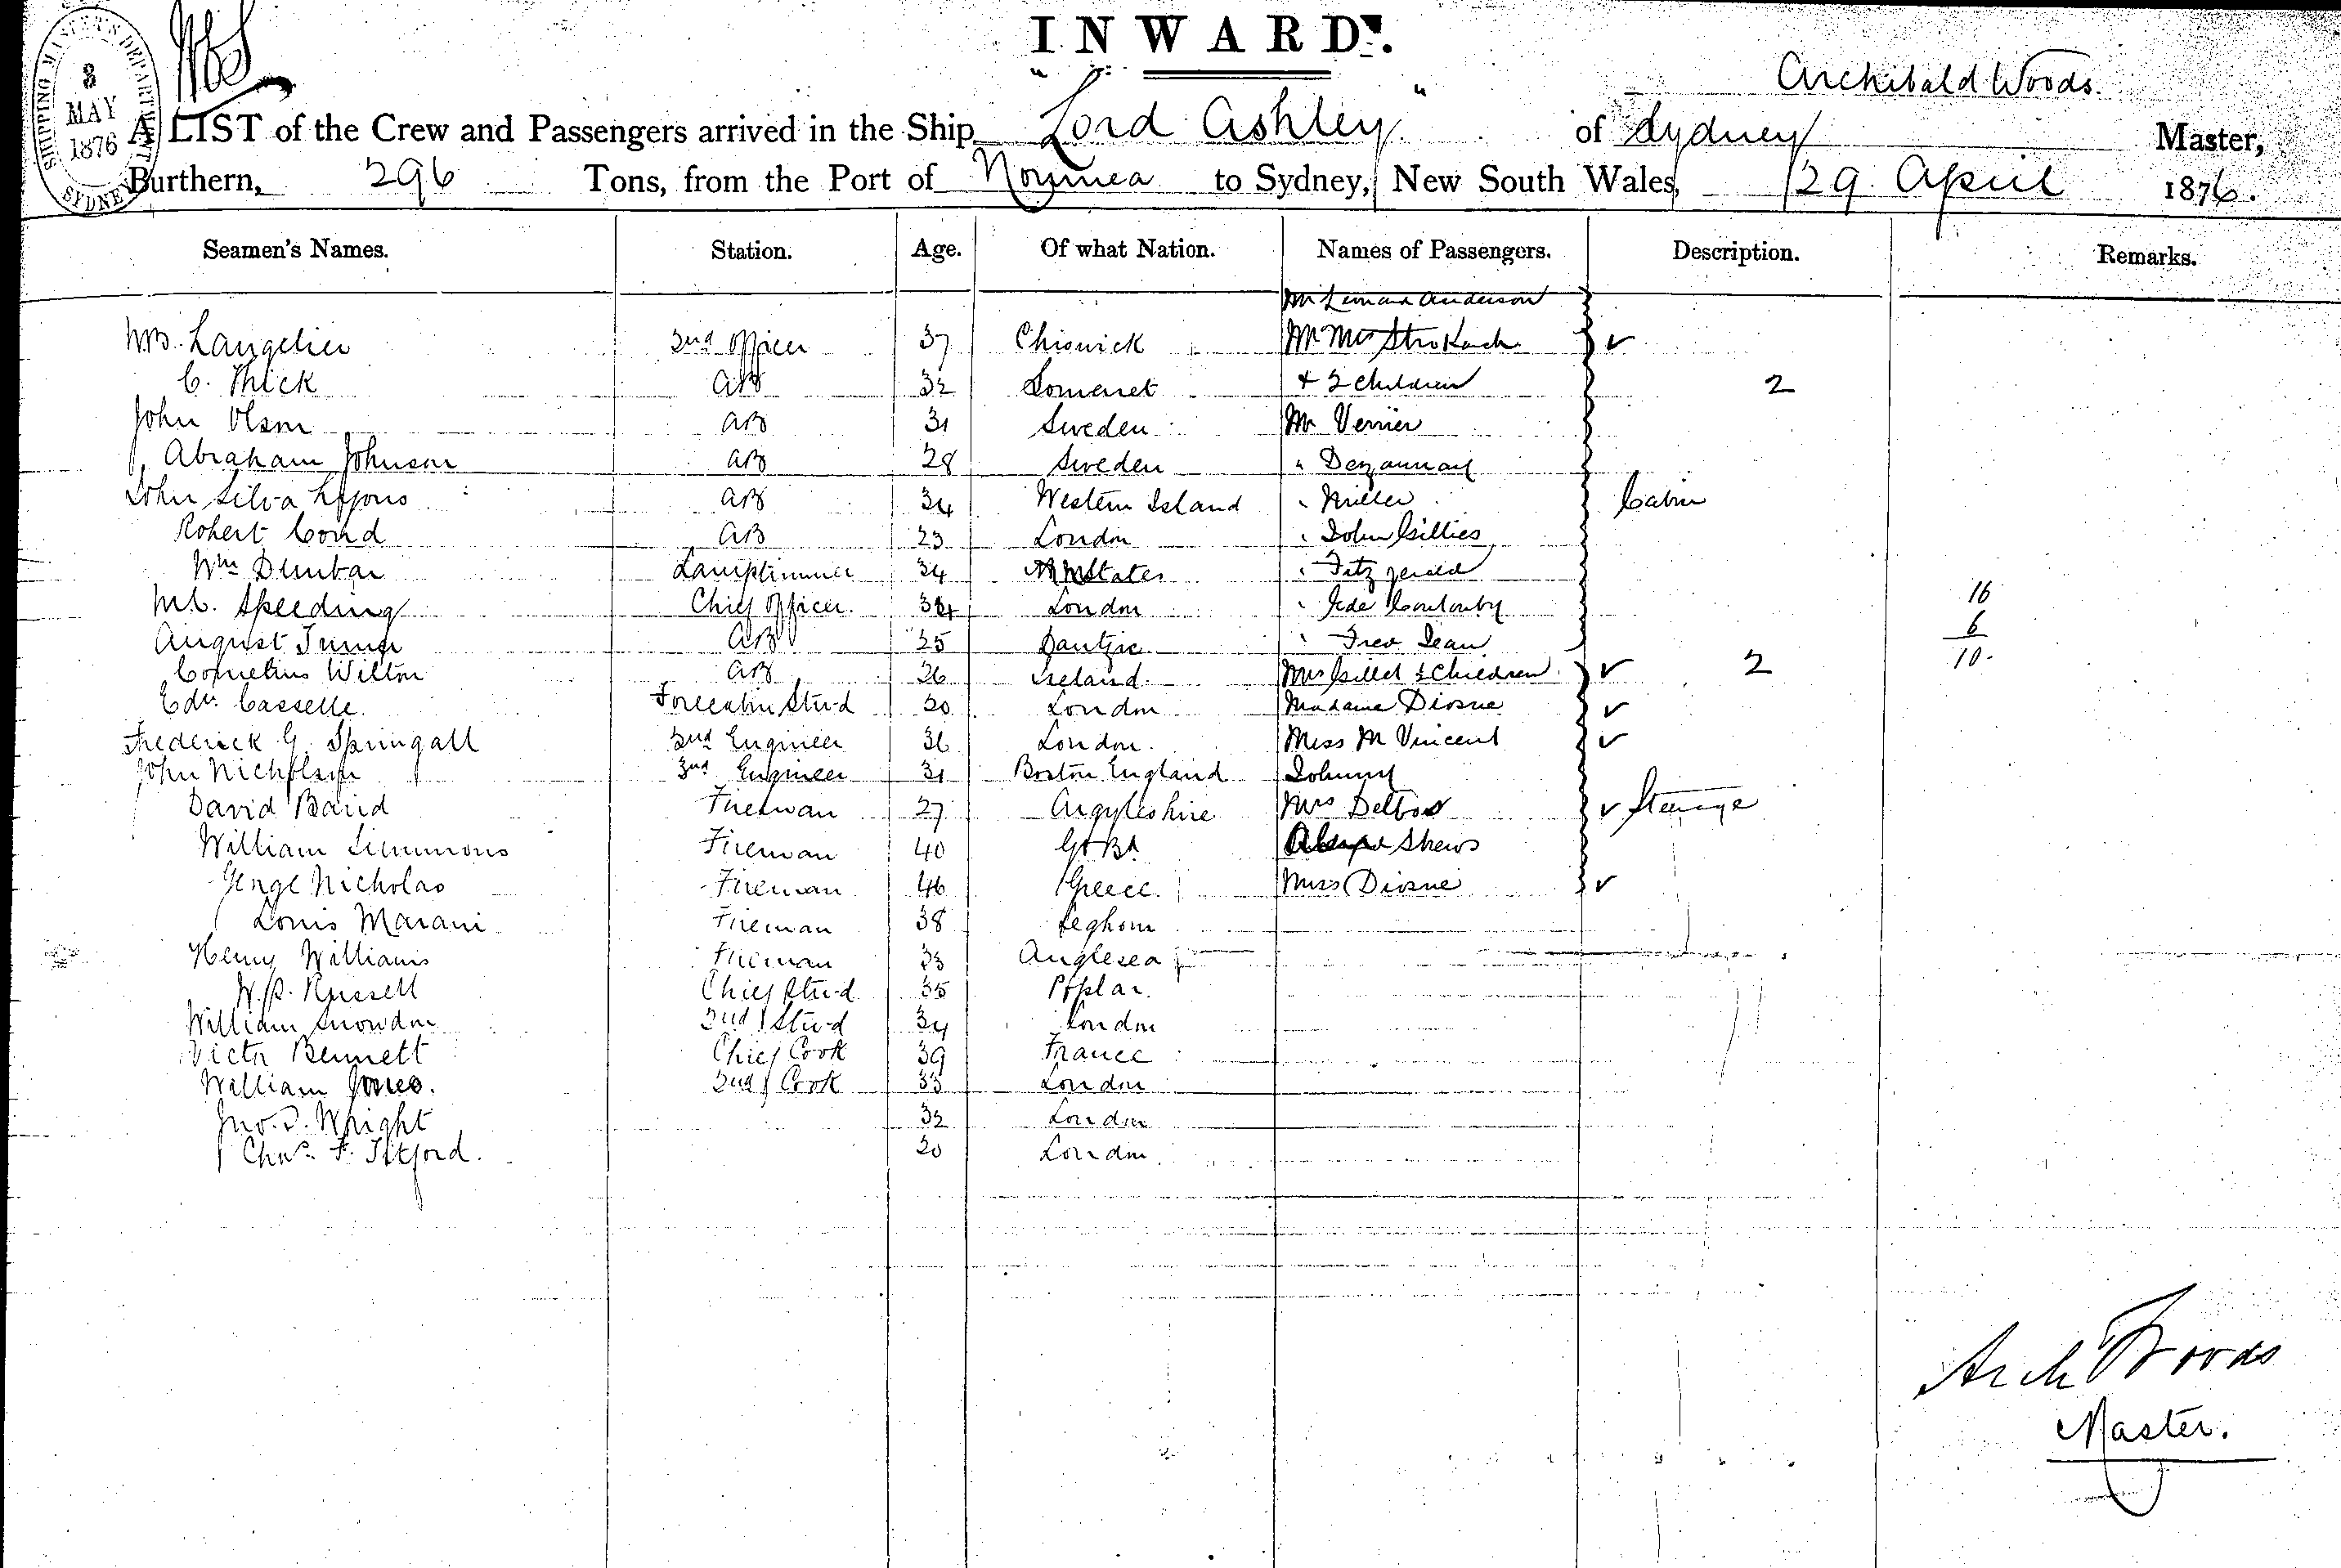 INWARD.
SHIPPING MASTER'S DEPARTMENT
3
MAY
1876
SYDNEY
Archibald Woods.
A LIST of the Crew and Passengers arrived in the Ship "Lord Ashley" of Sydney Master,
Burthern, 296 Tons, from the Port of Noumea to Sydney, New South Wales, 29 April 1876.
Seamen's Names. Station. Age. Of what Nation. Names of Passengers. Description. Remarks.
Mr Anderson
Langelier 2nd Officer 37 Chiswick Mr Mrs
C. Thick AB 32 Somerset + 2 children 2
John Olson AB 31 Sweden Mr Verrier
Abraham Johnson AB 28 Sweden "
John Silva Lyons AB 34 Western Island " Miller Cabin
Robert Cond AB 23 London " John Gillies
Wm Dunbar Lamptrimmer 34 States " Fitzgerald
M.C. Speeding Chief Officer. 34 London " 16
August AB 25 Dantzic " 6
Cornelius Wilton AB 26 Ireland. Mrs Gillet 2 Children 2 10.
Edw. Casselle. Forecabin Stwd 20 London Madame Diosne
Frederick G. Springall 2nd Engineer 36 London. Miss M Vincent
John Nicholson 3rd Engineer 31 Boston England Johnny
David Baird Fireman 27 Argyleshire Mrs Delbos Steerage
William Simmons Fireman 40 Gt Bn Shews
George Nicholas Fireman 46 Greece. Miss Diosne
Louis Marani Fireman 38 Leghorn
Henry Williams Fireman 33 Anglesea
W.P. Russell Chief Stwd 35 Poplar.
William Snowdon 2nd Stwd 34 London
Victor Bennett Chief Cook 39 France
William Jones. 2nd Cook 33 London
Jno. D. Wright 32 London
Chas. F. Titford. 20 London
Arch Woods
Master.